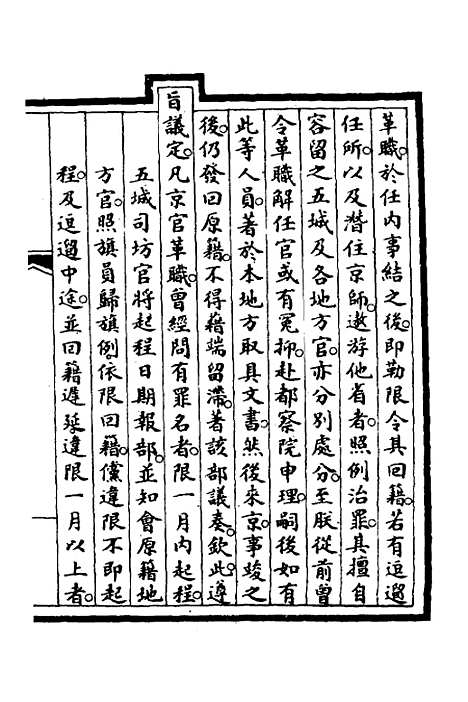 革職。於任內事結之後。即勒限令其回籍。若有逗遛
任所。以及潛住京師。遨游他省者。照例治罪。其擅自
容留之五城及各地方官。亦分別處分。至朕從前曾
令革職解任官或有冤抑。赴都察院申理。嗣後如有
此等人員。著於本地方取具文書。然後來京。事竣之
後。仍發回原籍。不得藉端留滯。著該部議奏。欽此。遵
旨議定。凡京官革職。曾經問有罪名者。限一月內起程。
五城司坊官將起程日期報部。並知會原籍地
方官。照旗員歸旗例。依限回籍。儻違限不即起
程。及逗遛中途。並回籍遲延違限一月以上者。